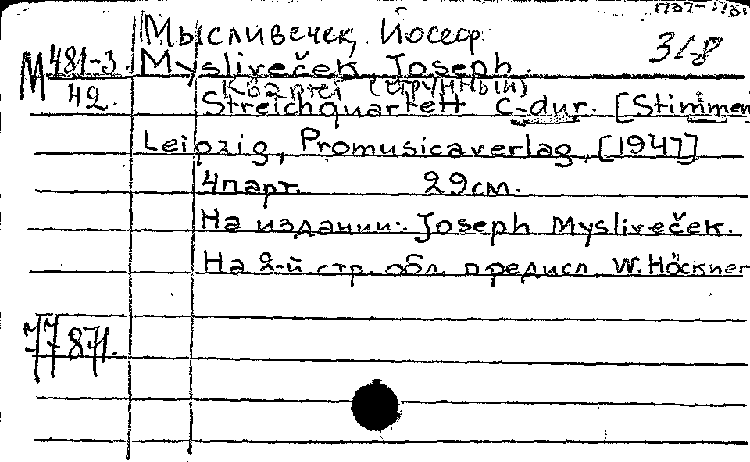 1737-1781
Мысливечек, Йосеф
31-8
М 481-3
42.
Mysliveček, Joseph.
Квартет (струнный)
Streichquartett C-dur. [Stimmen
Leipzig, Promusicaverlag, [1947]
4 парт. 29 см.
На издании: Joseph Mysliveček.
На 2-й стр. обл. предисл. W. Höckner
77871.